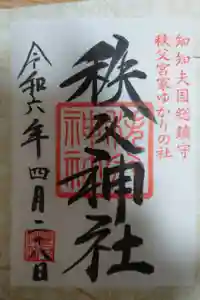 知知夫国総鎮守
秩父宮家ゆかりの社
秩父神社
令和六年四月二八日